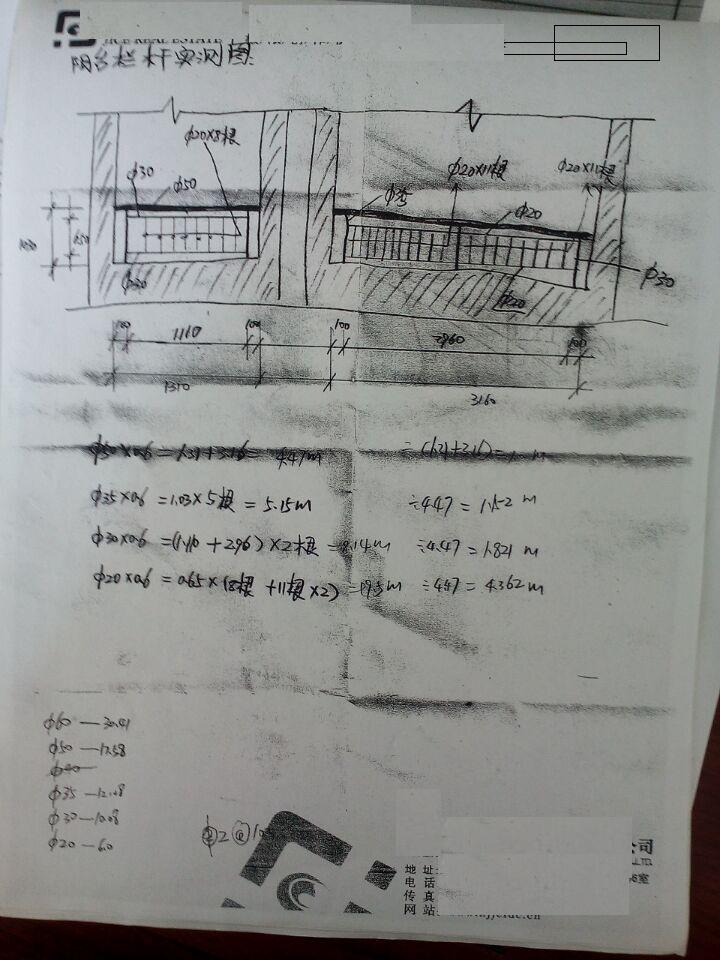 阳台栏杆实测图
φ20×8根
φ30
φ50
φ20×11根
φ20×11根
φ35
φ20
φ30
φ30
φ20
100
1110
100
100
2960
100
1310
3160
φ50×0.6 = 1.31+3.16 = 4.47m
φ35×0.6 = 1.03×5根 = 5.15m ÷4.47 = 1.152 m
φ30×0.6 = (1.110+2.96)×2根 = 8.14m ÷4.47 = 1.821 m
φ20×0.6 = 0.65×(8根+11根×2) = 19.5m ÷4.47 = 4.362m
φ60 — 30.41
φ50 — 17.58
φ40
φ35 — 12.18
φ30 — 10.08
φ20 — 6.0
公司
LTD.
室
地 址
电 话
传 真
网 站